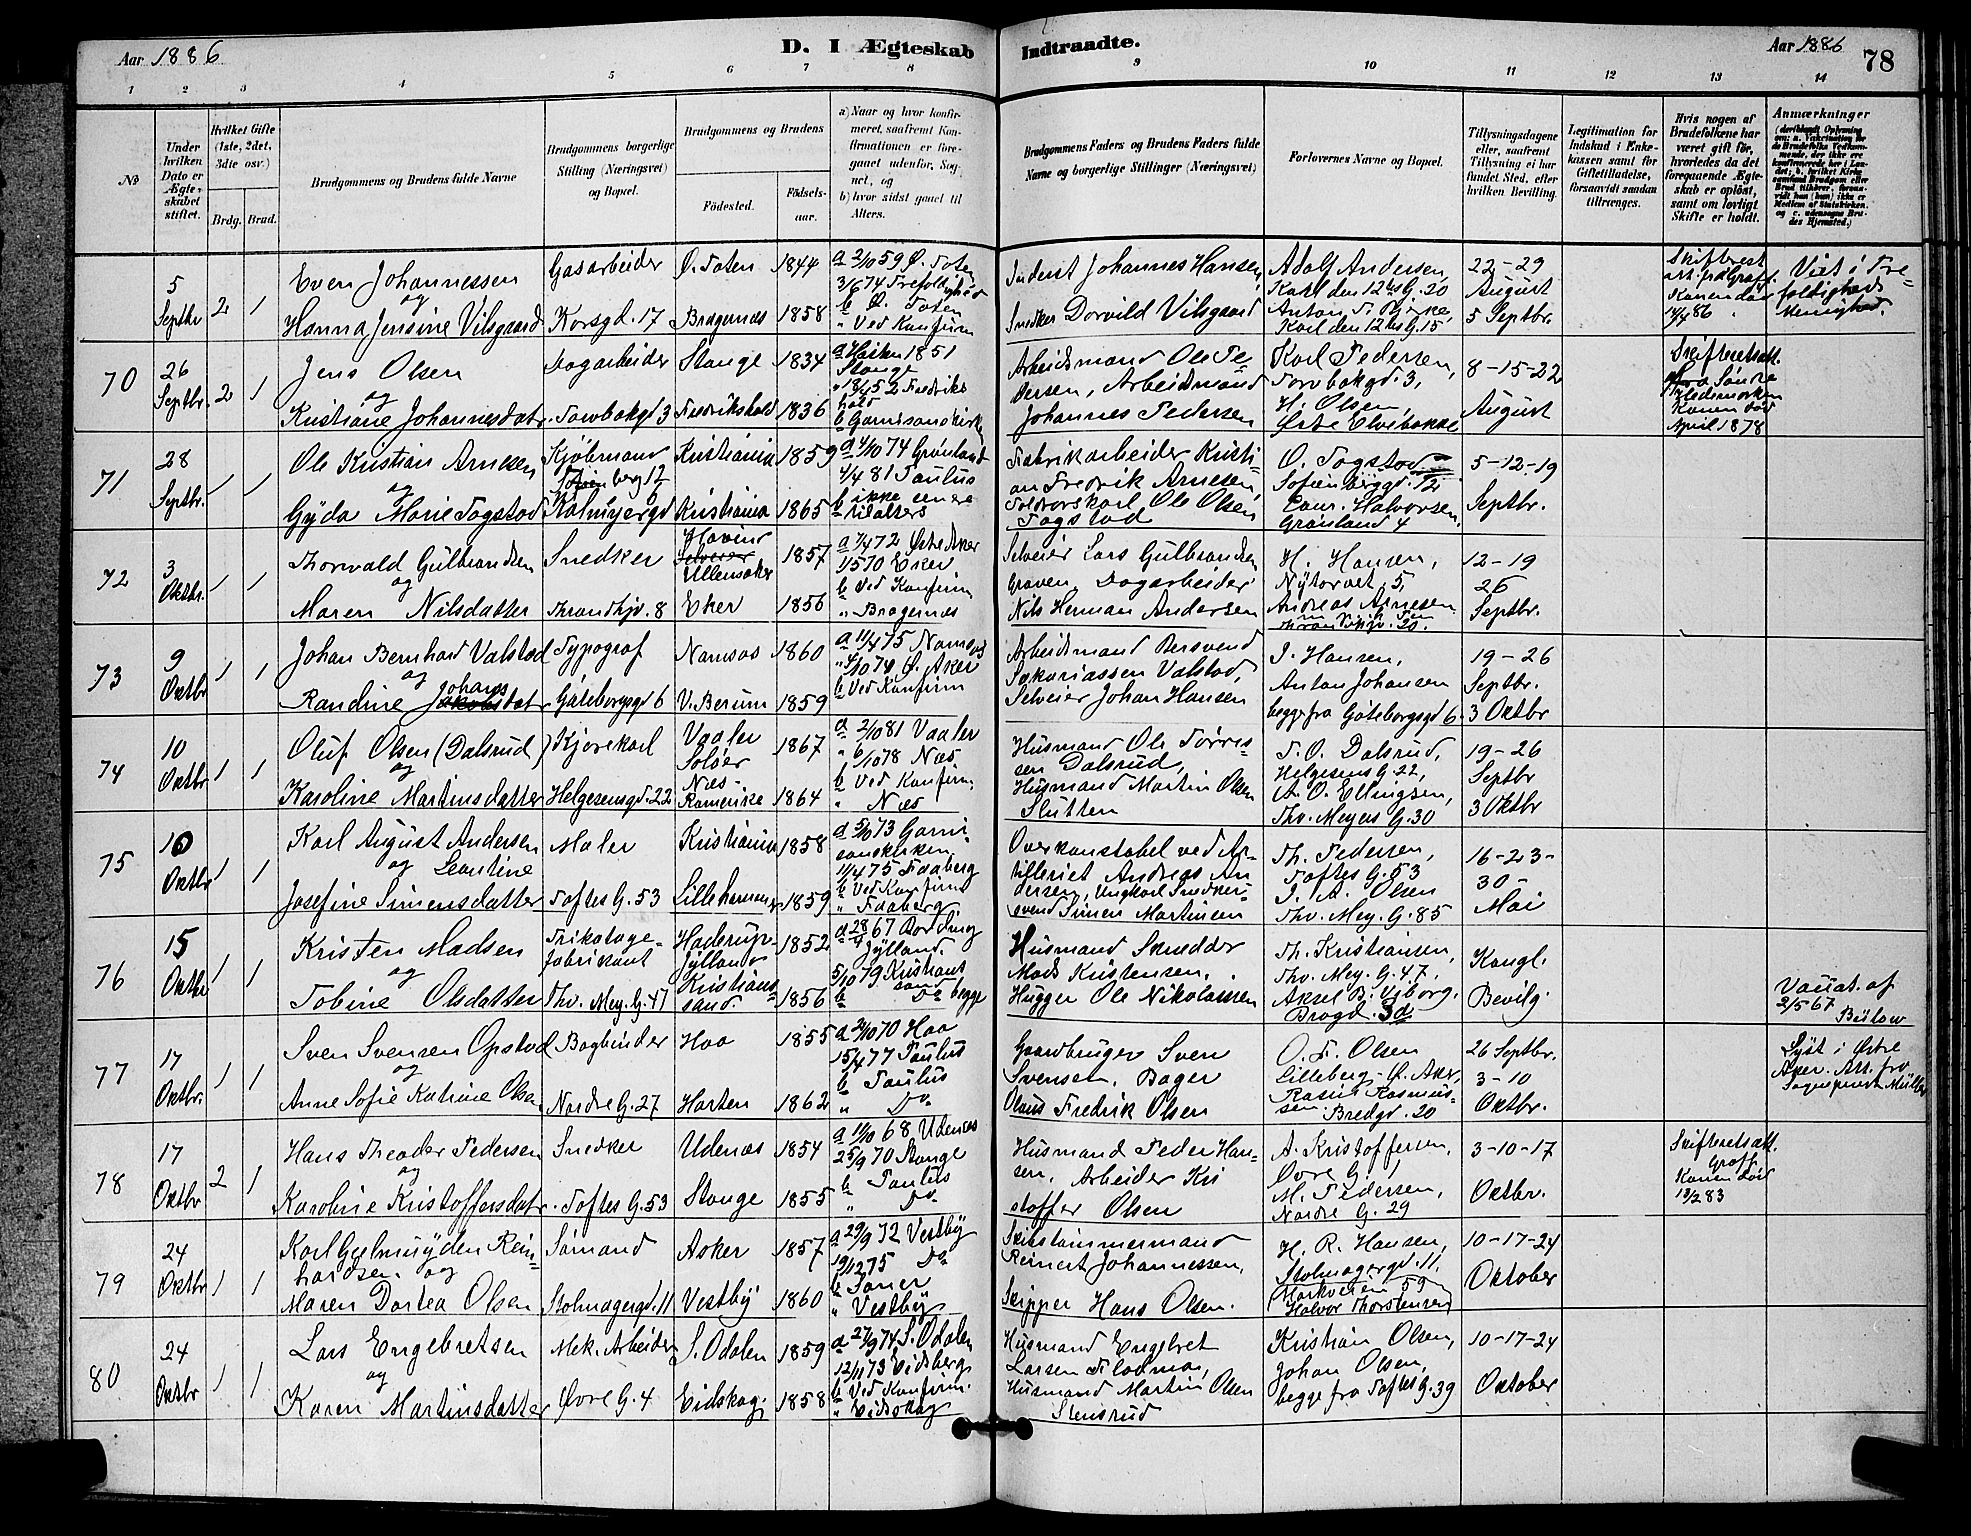 Aar 1886
D. I Ægteskab
Indtraadte.
Aar 1886
78
1 2 3 4 5 6 7 8 9 10 11 12 13 14
No
Under hvilken Dato er Ægteskabet stiftet.
Hvilket Gifte (1ste, 2det, 3die osv.)
Brdg. Brud.
Brudgommens og Brudens fulde Navne
Brudgommens borgerlige Stilling (Næringsvei) og Bopæl.
Brudgommens og Brudens
Fødested.
Fødselsaar.
a) Naar og hvor konfirmeret, saafremt Konfirmationen er foregaaet udenfor Sognet, og
b) hvor sidst gaaet til Alters.
Brudgommens Faders og Brudens Faders fulde Navne og borgerlige Stillinger (Næringsvei)
Forlovernes Navne og Bopæl.
Tillysningsdagene eller, saafremt Tillysning ei har fundet Sted, efter hvilken Bevilling.
Legitimation for Indskud i Enkekassen samt for Giftetilladelse, forsaavidt saadan tiltrænges.
Hvis nogen af Brudefolkene har været gift før, hvorledes da det foregaaende Ægteskab er opløst, samt om lovligt Skifte er holdt.
Anmærkninger
5 Septbr 2 1
Even Johannessen
og
Hanna Jensine Vilsgaard
Gasarbeider
Korsgd. 17
Ø. Toten 1844
Bragernæs 1858
a 2/10 59 Ø. Toten
b Ø. Toten
" Ved Konfirm
Inderst Johannes Hansen
Snedker Dorvild Vilsgaard
Adolf Andersen
Karl den 12tes G. 20
Karl den 12tes G. 15
22-29
August
5 Septbr.
Kanen død
Viet i Trefoldigheds
Menighed.
70 26 Septbr. 2 1
Jens Olsen
og
Kristiane Johannesdatr
Dagarbeider
Torvbakgd 3
Stange 1834
Fredrikshald 1836
a Høsten 1851
Stange
b Garnisonskirken
Arbeidsmand Ole Pedersen, Arbeidsmand
Johannes Pedersen
Karl Pedersen,
Torvbakgd. 3,
H. Olsen,
Østre Elvebakke
8-15-22
August
Skifteretsatt.
fra Søndre
Hedemarken
Konen død
April 1878
71 28 Septbr. 1 1
Ole Kristian Arnesen,
og
Gyda Marie Fogstad
Kjøbmand
Kristiania 1859
Kristiania 1865
a 4/10 74 Grønland
4/4 81 Paulus
b ikke
tilalters
Fabrikarbeider Kristian Fredrik Arnesen,
Ole Olsen
Fogstad
O. Fogstad
Sofienbergd. 12
Halvorsen,
Grønland 4
5-12-19
Septbr.
72 3 Oktbr. 1 1
Thorvald Gulbrandsen
og
Maren Nilsdatter
Snedker
Throndhjv. 8
Hovind
Ullensaker 1857
Eker 1856
a 7/4 72 Østre Aker
1/5 70 Eker
b Ved Konfirm
" Bragernæs
Selveier Lars Gulbrandsen
Graven, Dagarbeider
Nils Herman Andersen
H. Hansen,
Nytorvet 5,
Andreas Arnesen
12-19
26
Septbr.
73 9 Oktbr 1 1
Johan Bernhard Valstad
og
Randine Johansdatr
Typograf
Gøteborgsgd 6
Namsos 1860
V. Berum 1859
a 11/4 75 Namsos
" 4/10 74 Ø. Aker
b Ved Konfirm
Arbeidsmand Bersvend
Sakariassen Valstad,
Selveier Johan Hansen
J. Hansen,
Anton Johansen
begge fra Gøteborgsgd 6.
19-26
Septbr.
3 Oktbr
74 10 Oktbr 1 1
Oluf Olsen (Dalsrud)
og
Karoline Martinsdatter
Kjørekarl
Helgesensgd. 22
Vaaler
Soløer 1867
Næs
Romerike 1864
a 2/10 81 Vaaler
" 6/10 78 Næs
b Ved Konfirm.
" Næs
Husmand Ole Torresen Dalsrud,
Husmand Martin Olsen
Slutten
T. O. Dalsrud,
Helgesens G. 22,
A. O. Ellingsen,
Thv. Meyers G. 30
19-26
Septbr
3 Oktbr
75 10 Oktbr 1 1
Karl August Andersen
og Leontine
Josefine Simensdatter
Maler
Toftes G. 53
Kristiania 1858
Lillehammer 1859
a 5/10 73 Garnisonskirken
11/4 75 Faaberg
b Ved Konfirm
" Faaberg
Overkonstabel ved Artilleriet Andreas Andersen, Ungkarl Snedkersvend Simen Martinsen
Th. Pedersen,
Toftes G. 53
J. A. Olsen
Thv. Mey. G. 85
16-23-
30-
Mai
76 15 Oktbr 1 1
Kristen Madsen
og
Tobine Olsdatter
Trikotagefabrikant
Thv. Mey. G. 47
Haderup
Jylland 1852
Kristianssand. 1856
a 28/4 67 Bording
Jylland.
5/10 79 Kristianssand
b Do begge
Husmand Skrædder
Mads Kristensen,
Hugger Ole Nikolaisen
Th. Kristiansen,
Thv. Mey. G. 47,
Aksel B. Viborg,
Brogd. 3a
Kongl.
Bevilg.
Vacat. af
2/5 67
Bülow
77 17 Oktbr. 1 1
Sven Svensen Opstad
og
Anne Sofie Katrine Olsen
Bogbinder
Nordre G. 27
Haa 1855
Horten 1862
a 2/10 70 Haa
15/4 77 Paulus
b Paulus
" Do
Gaardbruger Sven
Svensen. Bager
Olaus Fredrik Olsen
O. F. Olsen
Lilleberg - Ø. Aker,
Rasmus Rasmussen Bredgd. 20
26 Septbr.
3-10
Oktbr.
Lyst i Østre
Aker. Att. fra
Sogneprest Müller
78 17 Oktbr 2 1
Hans Theodor Pedersen
og
Karoline Kristoffersdatr
Snedker
Toftes G. 53
Udenæs 1854
Stange 1855
a 11/10 68 Udenæs
25/9 70 Stange
b Paulus
" Do
Husmand Peder Hansen, Arbeider Kristoffer Olsen
A. Kristoffersen,
Øvre G. 1
M. Pedersen,
Nordre G. 29
3-10-17
Oktbr.
Skifteretsatt.
Graff.
Konen død
13/2 83
79 24 Oktbr 1 1
Karl Gjelmuyden Reinhardsen og
Maren Dortea Olsen
Sømand
Stolmagergd. 11
Asker 1857
Vestby 1860
a 29/9 72 Vestby
19/12 75 Do
" Vestby
Skibstømmermand
Reinert Johannessen,
Skipper Hans Olsen.
H. R. Hansen,
Stolmagergd. 11,
Markveien 59
Halvor Thorstensen
10-17-24
Oktober
80 24 Oktbr 1 1
Lars Engebretsen
og
Karen Martinsdatter
Mek. Arbeider
Øvre G. 4
S. Odalen 1859
Eidskog 1858
a 27/9 74 S. Odalen
12/1 73 Eidsberg
b Ved Konfirm.
" Eidskog
Husmand Engebret
Larsen Flodmo,
Husmand Martin Olsen
Stensrud
Kristian Olsen,
Johan Olsen,
begge fra Toftes G. 39
10-17-24
Oktober